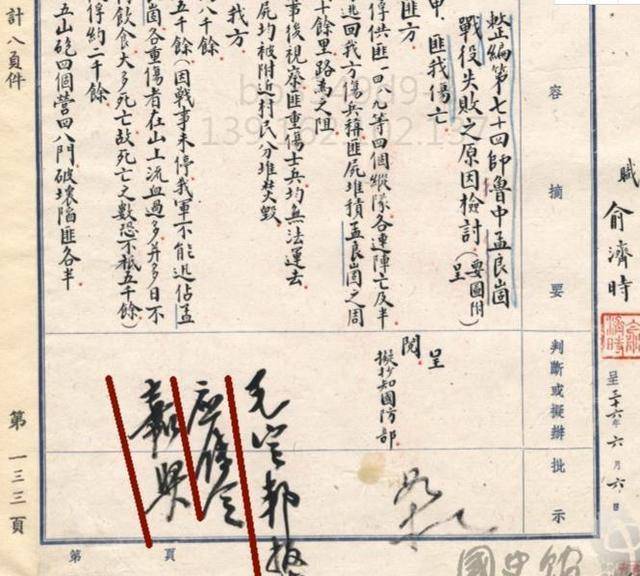 職
俞濟時
呈 三十六年六月六日
容
摘
要
判斷或擬辦
批示
整編第七十四師魯中孟良崮
戰役失敗之原因檢討(要圖附呈)
甲、匪我傷亡
匪方
俘供匪一四八九等四個縱隊各連陣亡及半
逃回我方傷兵稱匪屍堆積孟良崮之周
十餘里路為之阻
事後視察匪重傷士兵均無法運去
屍均被附近村民分堆焚毀
我方
八千餘
五千餘(因戰事未停我軍不能迅佔孟
崮各重傷者在山上流血過多并多日不
得飲食大多死亡故死亡之數恐不祇五千餘)
俘約二千餘
五山砲四個營四八門破壞陷匪各半
呈
閱
擬抄知國防部
嘉獎
計八頁件
第一三三頁
第 頁
國史館